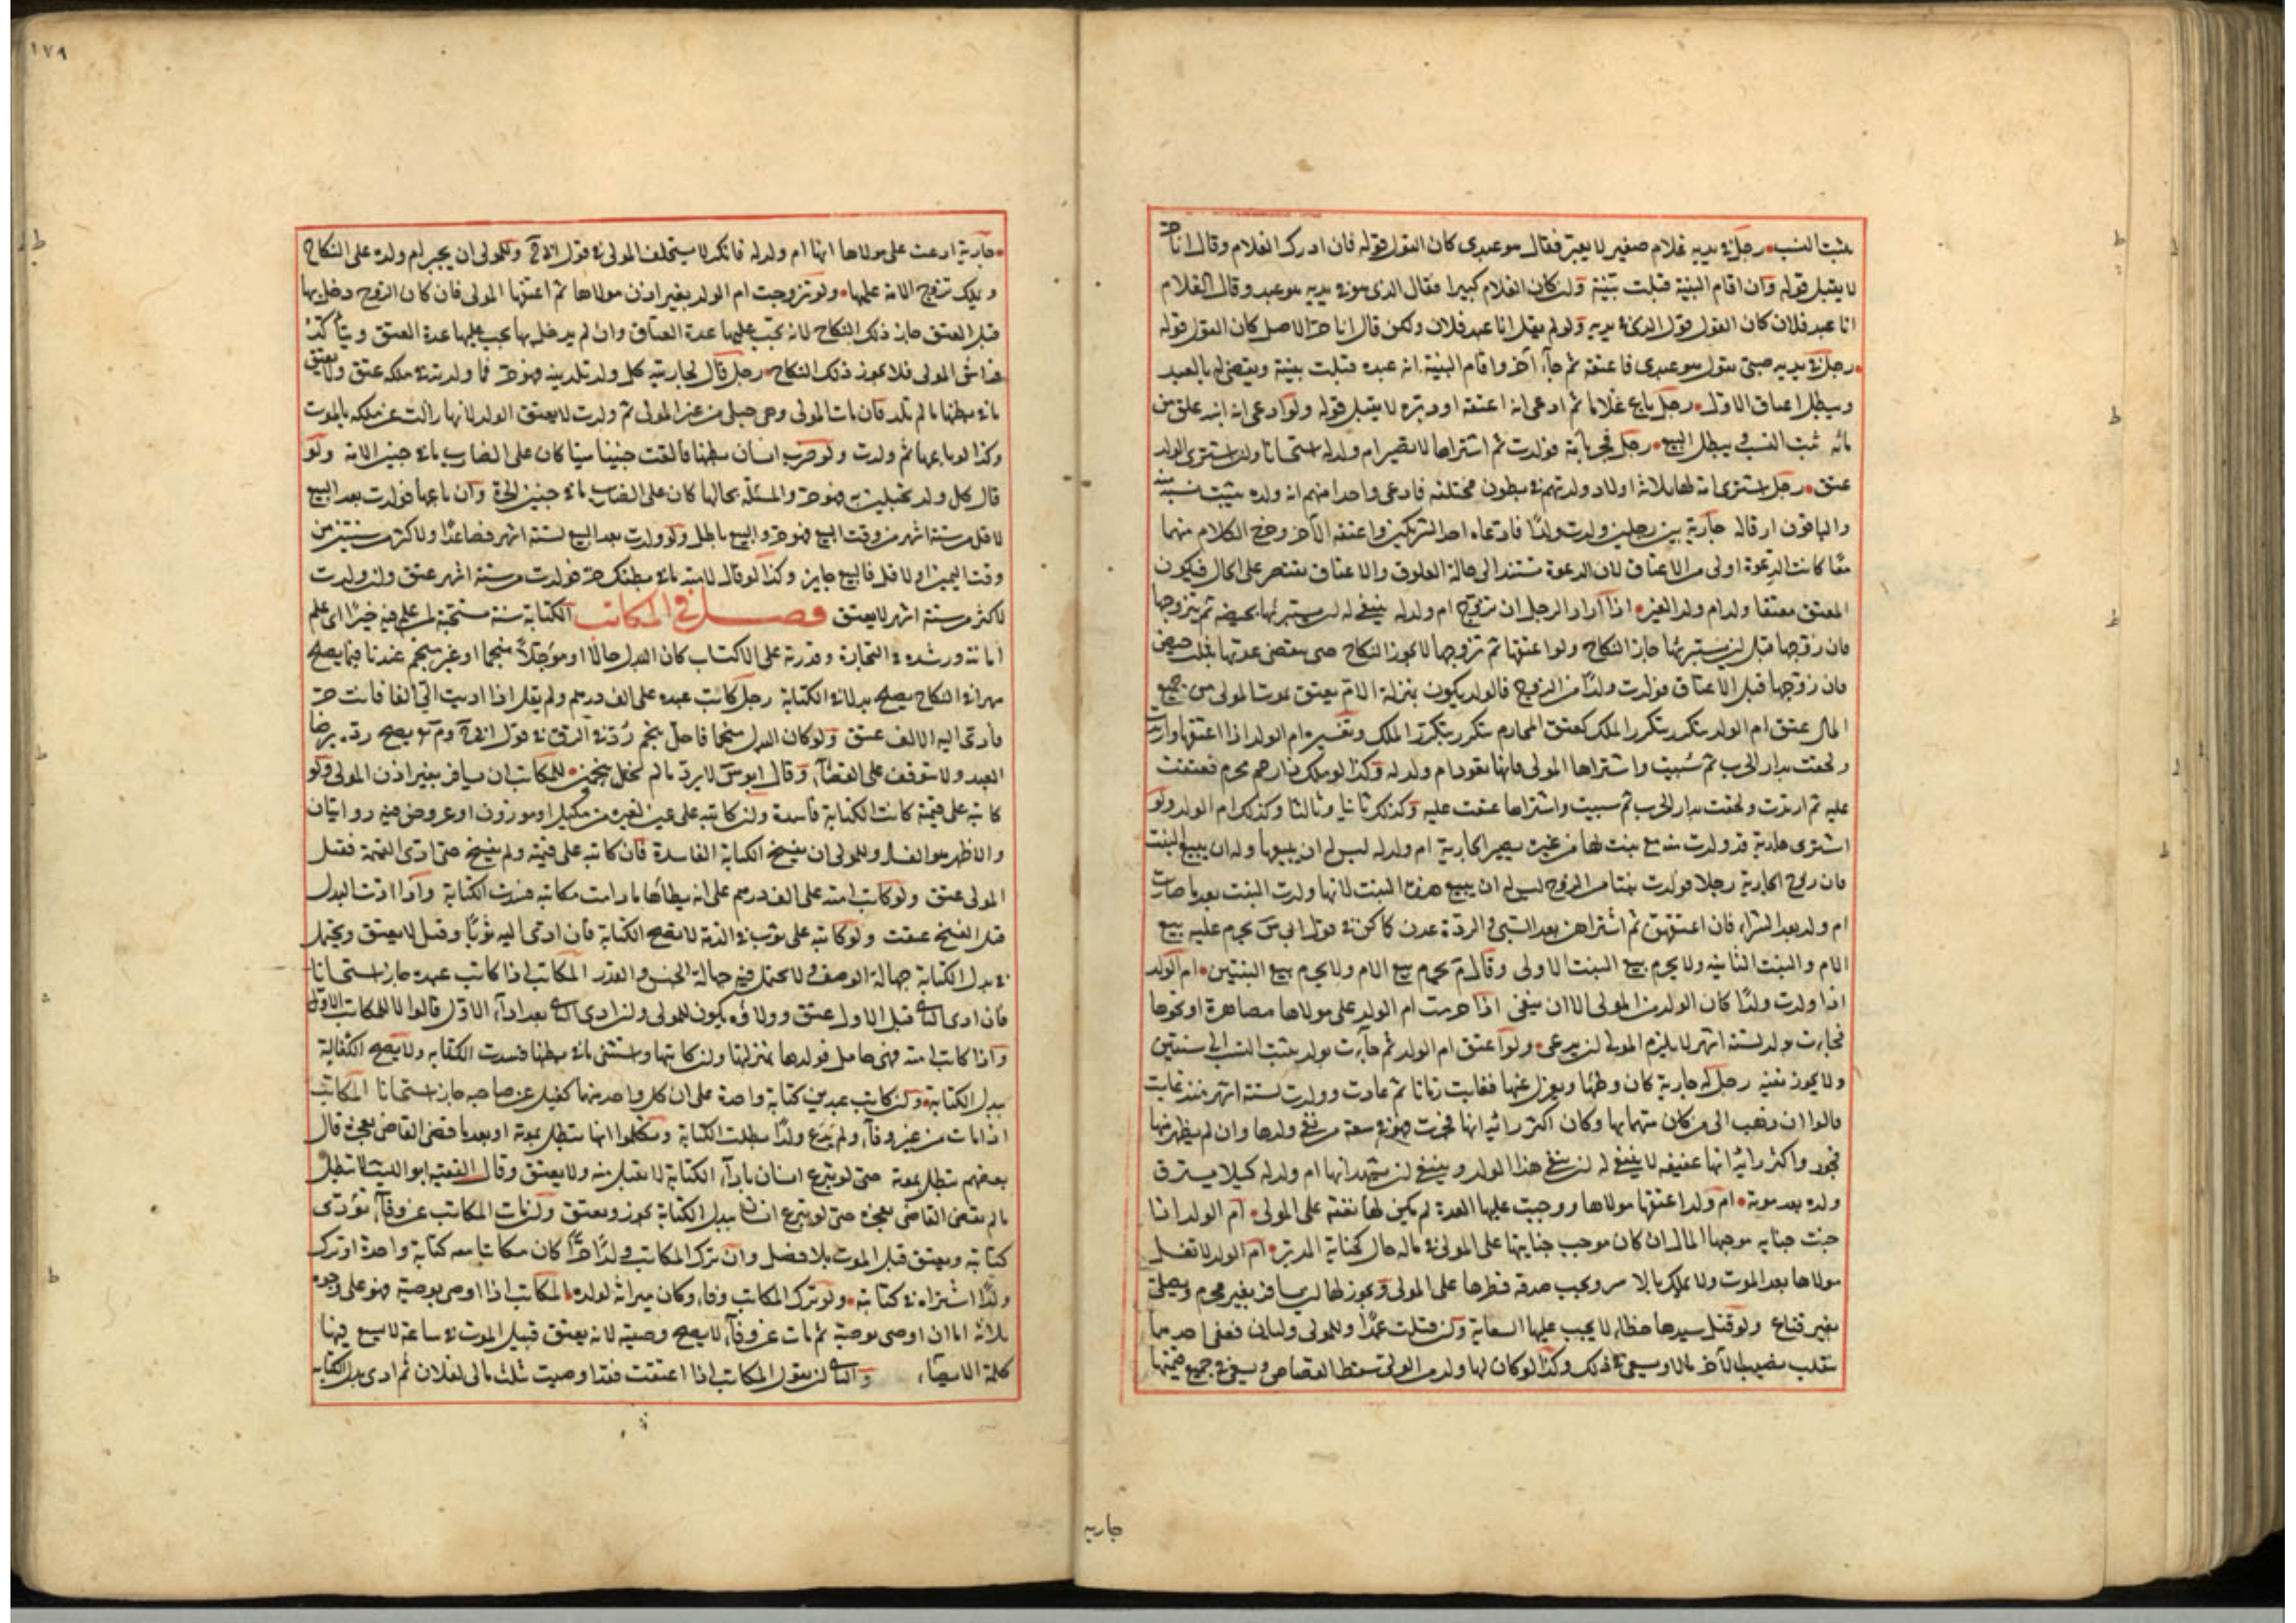 يثبت النسب رجل في يديه غلام صغير لا يعبر فقال هو عبدي كان القول قوله فان ادرك الغلام وقال انا حر
لا يقبل قوله وان اقام البينة قبلت بينته ولو كان الغلام كبيرا فقال الذي هو في يديه هو عبد وقال الغلام
انا عبد فلان كان القول قول الذي في يديه ولو لم يقل انا عبد فلان ولكن قال انا حر الاصل كان القول قوله
رجل في يديه صبي يقول هو عبدي فاعتقه ثم جاء آخر واقام البينة انه عبده قبلت بينته ويقضى له بالعبد
ويبطل اعتاق الاول رجل باع غلاما ثم ادعى انه اعتقه او دبره لا يقبل قوله ولو ادعى انه ابنه علق من
مائه ثبت النسب ويبطل البيع رجل فجر بامة فولدت ثم اشتراها لا تصير ام ولد له استحسانا ولو اشترى الولد
عتق رجل اشترى امة لها ثلاثة اولاد ولدتهم في بطون مختلفة فادعى واحدا منهم انه ولده يثبت نسبه منه
والباقون ارقاله جارية بين رجلين ولدت ولدا فادعاه احد الشريكين واعتقه الآخر وخرج الكلام منهما
معا كانت الدعوة اولى من الاعتاق لان الدعوة تستند الى حالة العلوق والاعتاق يقتصر على الحال فيكون
المعتق معتقا ولد ام ولد الغير اذا اراد الرجل ان يزوج ام ولد له ينبغي له ان يستبرئها بحيضة ثم يزوجها
فان زوجها قبل ان يستبرئها جاز النكاح ولو اعتقها ثم تزوجها لا يجوز النكاح حتى تنقضي عدتها بثلث حيض
فان زوجها قبل الاعتاق فولدت ولدا من الزوج فالولد يكون بمنزلة الام يعتق بموت المولى من جميع
المال عتق ام الولد يتكرر بتكرر الملك كعتق المحارم يتكرر بتكرر الملك وتفسيره ام الولد اذا اعتقها وارتدت
ولحقت بدار الحرب ثم سبيت واشتراها المولى فانها تعود ام ولد له وكذا لو ملك ذا رحم محرم فعتقت
عليه ثم ارتدت ولحقت بدار الحرب ثم سبيت واشتراها عتقت عليه وكذلك ثانيا وثالثا وكذلك ام الولد ولو
اشترى جارية قد ولدت منه مع بنت لها من غيره يصير الجارية ام ولد له ليس له ان يبيعها وله ان يبيع البنت
فان زوج الجارية رجلا فولدت بنتا من الزوج ليس له ان يبيع هذه البنت لانها ولدت البنت بعد ما صارت
ام ولد بعد الشراء فان اعتقهن ثم اشتراهن بعد السبي والردة عدن كما كن في قول ابي س يحرم عليه بيع
الام والبنت الثانية ولا يحرم بيع البنت الاولى وقال م يحرم بيع الام ولا يحرم بيع البنتين ام الولد
اذا ولدت ولدا كان الولد من المولى الا ان ينفي اذا حرمت ام الولد على مولاها مصاهرة او نحوها
فجاءت بولد لستة اشهر لا يلزم المولى ان يدعى ولو اعتق ام الولد ثم جاءت بولد يثبت النسب الى سنتين
ولا يجوز نفيه رجل له جارية كان وطئها ويعزل عنها فغابت زمانا ثم عادت وولدت لستة اشهر منذ غابت
قالوا ان ذهب الى من كان متهما بها وكان اكثر رأيه انها فجرت فهو في سعة من نفي ولدها وان لم يظهر منها
فجور واكثر رأيه انها عفيفة لا ينبغي له ان ينفي هذا الولد وينبغي ان يشهد انها ام ولد له كيلا يسترق
ولده بعد موته ام ولد اعتقها مولاها ووجبت عليها العدة لم يكن لها نفقة على المولى ام الولد اذا
جنت جناية موجبها المال ان كان موجب جنايتها على المولى في ماله حال كجناية المدبر ام الولد لا تغسل
مولاها بعد الموت ولا يملك بالاسر ويجب صدقة فطرها على المولى ويجوز لها ان يسافر بغير محرم ويصلي
بغير قناع ولو قتل سيدها خطأ لا يجب عليها السعاية ولو قتلت عمدا وللمولى وليان فعفى احدهما
ينقلب نصيب الآخر مالا ويسعى في ذلك وكذا لو كان لها ولد من المولى سقط القصاص ويسعى في جميع قيمتها
جارية
١٧٩
جارية ادعت على مولاها انها ام ولد له فانكر لا يستحلف المولى في قول ابي ح وللمولى ان يجبر ام ولده على النكاح
ويملك تزويج الامة عليها ولو تزوجت ام الولد بغير اذن مولاها ثم اعتقها المولى فان كان الزوج دخل بها
قبل العتق جاز ذلك النكاح لانه يجب عليها عدة العتاق وان لم يدخل بها يجب عليها عدة العتق ويتأكد
فراش المولى فلا يجوز ذلك النكاح رجل قال لجاريته كل ولد تلدينه فهو حر فما ولدته في ملكه عتق ولا يعتق
ما في بطنها ما لم تلد فان مات المولى وهي حبلى من غير المولى ثم ولدت لا يعتق الولد لانها زالت عن ملكه بالموت
وكذا لو باعها ثم ولدت ولو ضرب انسان بطنها فالقت جنينا ميتا كان على الضارب ما في جنين الامة ولو
قال كل ولد تحبلين به فهو حر والمسئلة بحالها كان على الضارب ما في جنين الحرة وان باعها فولدت بعد البيع
لاقل من ستة اشهر من وقت البيع فهو حر والبيع باطل ولو ولدت بعد البيع لستة اشهر فصاعدا ولاكثر من سنتين من
وقت اليمين او لاقل فالبيع جايز وكذا لو قال لامته ما في بطنك حر فولدت من ستة اشهر عتق وان ولدت
لاكثر من ستة اشهر لا يعتق فصل في المكاتب الكتابة سنة مستحبة لمن علم فيه خيرا اي علم
امانته ورشده في التجارة وقدرته على الاكتساب كان البدل حالا او مؤجلا منجما او غير منجم عندنا فيما يصلح
مهرا في النكاح يصلح بدلا في الكتابة رجل كاتب عبده على الف درهم ولم يقل اذا اديت الي الفا فانت حر
فادى اليه الالف عتق ولو كان البدل منجما فاخل بنجم رد في الرق في قول ابي ح وم ثم يصح رده برضا
العبد ولا يتوقف على القضاء وقال ابو س لا يرد ما لم يخل بنجمين للمكاتب ان يسافر بغير اذن المولى ولو
كاتبه على قيمته كانت الكتابة فاسدة وان كاتبه على عين لغيره من مكيل او موزون او عروض فيه روايتان
والاظهر هو الفساد وللمولى ان يفسخ الكتابة الفاسدة فان كاتبه على قيمته ولم يفسخ حتى ادى القيمة فقبل
المولى عتق ولو كاتب امته على الف درهم على انه يطأها ما دامت مكاتبة فسدت الكتابة واذا ادت البدل
قبل الفسخ عتقت ولو كاتبه على ثوب في الذمة لا تصح الكتابة فان ادى اليه ثوبا وقبل لا يعتق ويحتمل
في بدل الكتابة جهالة الوصف ولا يحتمل فيه جهالة الجنس والقدر المكاتب اذا كاتب عبده جاز استحسانا
فان ادى الثاني قبل الاول عتق وولاؤه يكون للمولى وان ادى الثاني بعد اداء الاول قالوا لا للمكاتب الاول
واذا كاتب امته فهي حامل فولدها بمنزلتها وان كاتبها واستثنى ما في بطنها فسدت الكتابة ولا يصح الكفالة
ببدل الكتابة ولو كاتب عبدين كتابة واحدة على ان كل واحد منهما كفيل عن صاحبه جاز استحسانا المكاتب
اذا مات من غير وفاء ولم يدع ولدا بطلت الكتابة وتكلموا انها تبطل بموته او بعد ما قضى القاضي بعجزه قال
بعضهم تبطل بموته حتى لو تبرع انسان باداء الكتابة لا تقبل منه ولا يعتق وقال الفقيه ابو الليث لا تبطل
ما لم يقض القاضي بعجزه حتى لو تبرع انسان ببدل الكتابة يجوز ويعتق ولو مات المكاتب عن وفاء تؤدى
كتابته ويعتق قبل الموت بلا فصل وان ترك المكاتب ولدا حرا كان مكاتبا معه كتابة واحدة او ترك
ولدا اشتراه في كتابته ولو ترك المكاتب وفاء وكان ميراثه لولده المكاتب اذا اوصى بوصية فهو على وجوه
ثلاثة اما ان اوصى بوصية ثم مات عن وفاء لا يصح وصيته لانه يعتق قبيل الموت في ساعة لا يسع فيها
كلمة الايصاء والثاني ان يقول المكاتب اذا اعتقت فقد اوصيت ثلث مالي لفلان ثم ادى بدل الكتابة